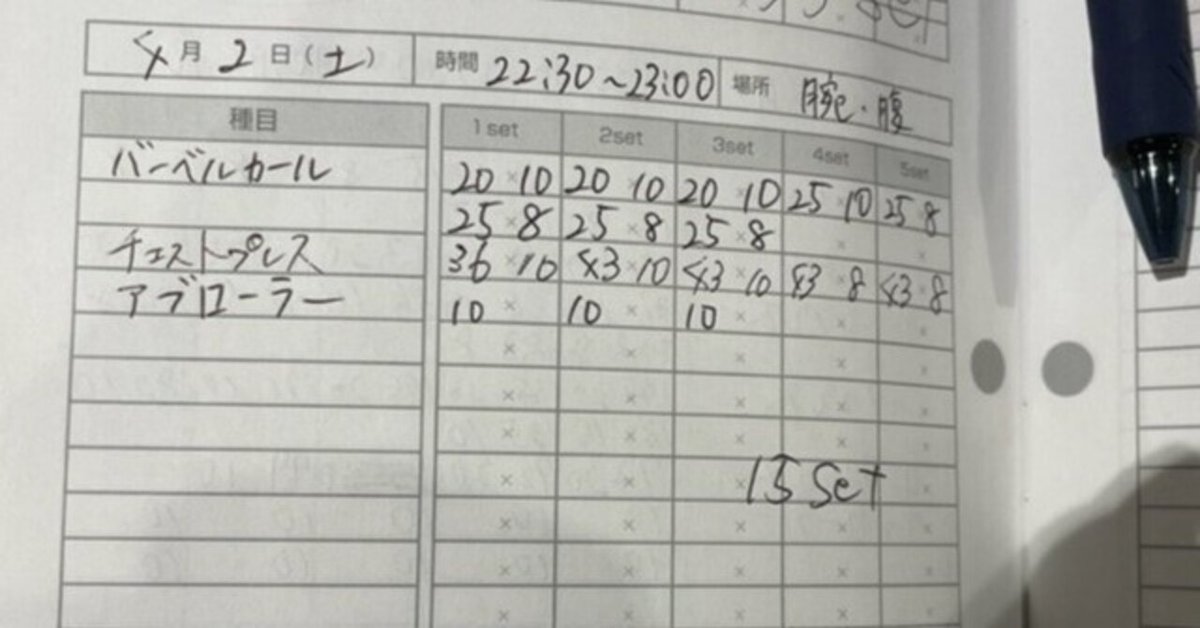 4月2日(土) 時間 22:30~23:00 場所 腕・腹
種目 1set 2set 3set 4set 5set
バーベルカール 20×10 20×10 20×10 25×10 25×8
25×8 25×8 25×8 × ×
チェストプレス 36×10 43×10 43×10 43×8 43×8
アブローラー 10× 10× 10× × ×
× × × × ×
× × × × ×
× × × ×
× × ×
15set
× × × × ×
× × × × ×
× × × × ×